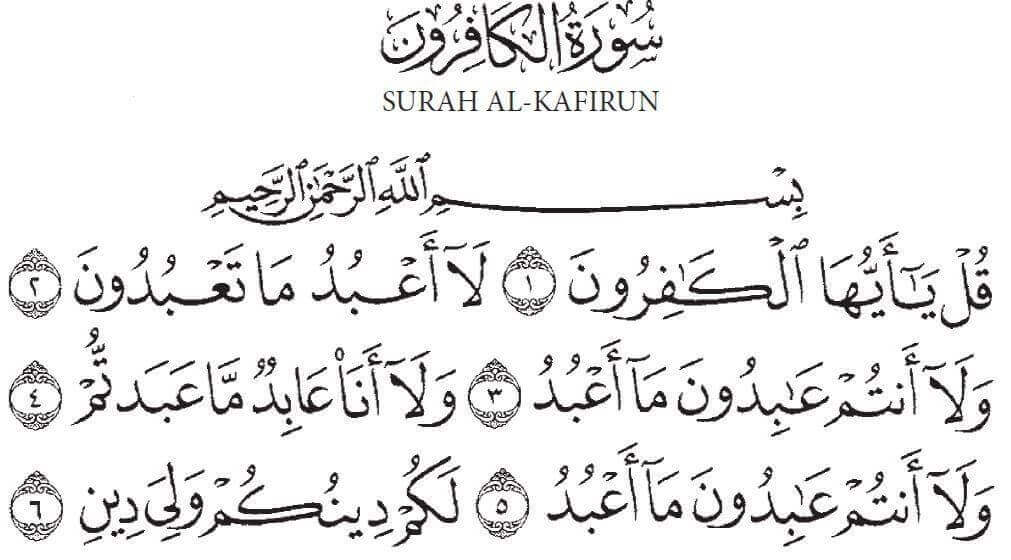 سُورَةُ الكَافِرُونَ
SURAH AL-KAFIRUN
بِسْمِ ٱللَّهِ ٱلرَّحْمَٰنِ ٱلرَّحِيمِ
قُلْ يَـٰٓأَيُّهَا ٱلْكَـٰفِرُونَ ١ لَآ أَعْبُدُ مَا تَعْبُدُونَ ٢
وَلَآ أَنتُمْ عَـٰبِدُونَ مَآ أَعْبُدُ ٣ وَلَآ أَنَا۠ عَابِدٌ مَّا عَبَدتُّمْ ٤
وَلَآ أَنتُمْ عَـٰبِدُونَ مَآ أَعْبُدُ ٥ لَكُمْ دِينُكُمْ وَلِىَ دِينِ ٦